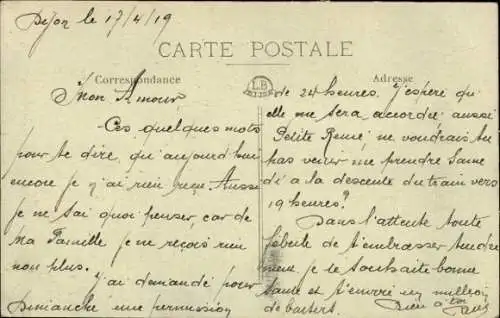 Dijon le 17/4/19
CARTE POSTALE
Correspondance
LB
Adresse
Mon Amour
Ces quelques mots
pour te dire, qu'aujourd'hui
encore je n'ai rien reçu. Aussi
je ne sai quoi penser, car de
Ma Famille je ne reçois rien
non plus.
J'ai demandé pour
Dimanche une permission
de 24 heures. J'espère qu'
elle me sera accordée aussi
Petite René, ne voudrais tu
pas venir me prendre Same
di a la descente du train vers
19 heures?
Dans l'attente toute
fébrile de t'embrasser tendre
ment je te souhaite bonne
Santé et t'envoie un million
de baisers. Bien à toi